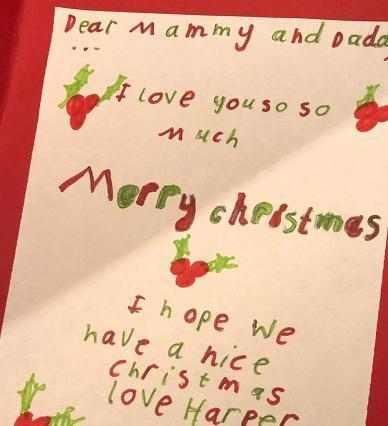 Dear Mammy and Dadd
...
I love you so so
much
Merry christmas
I hope we
have a nice
christmas
love Harper